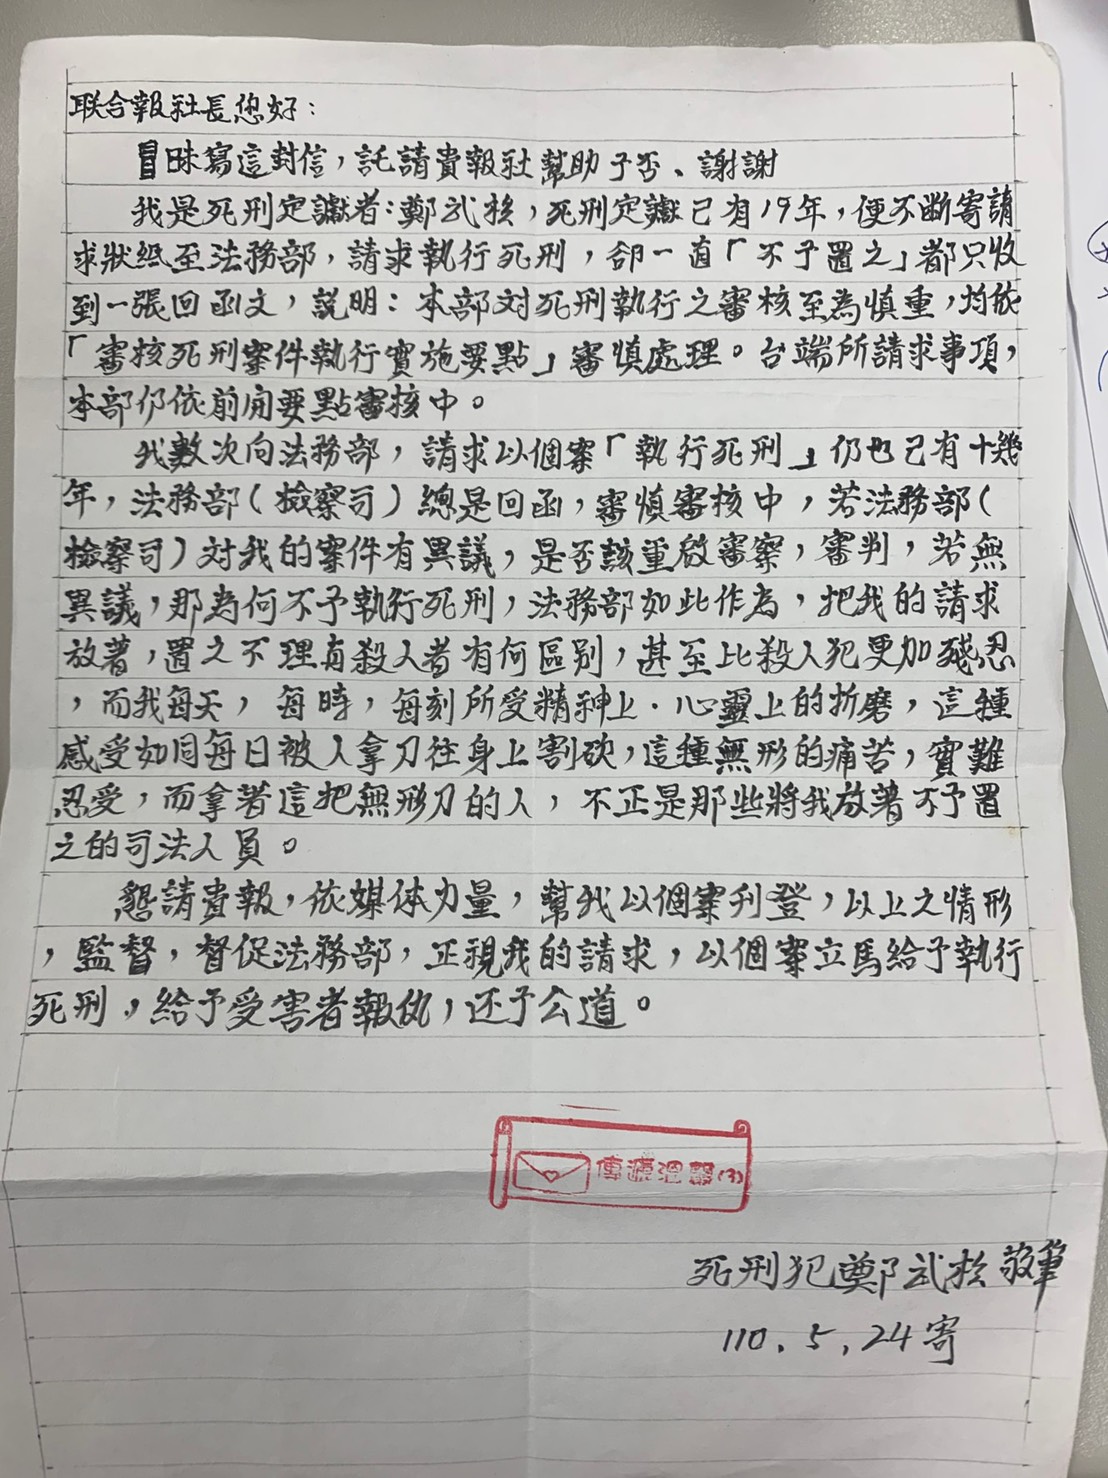 联合報社長您好：
冒昧寫這封信，託請貴報社幫助予否、謝謝
我是死刑定讞者：鄭武松，死刑定讞已有19年，便不斷寄請
求狀紙至法務部，請求執行死刑，卻一直「不予置之」都只收
到一張回函文，説明：本部对死刑執行之審核至為慎重，均依
「審核死刑案件執行實施要點」審慎處理。台端所請求事項，
本部仍依前開要點審核中。
我數次向法務部，請求以個案「執行死刑」仍也已有十幾
年，法務部（檢察司）總是回函，審慎審核中，若法務部（
檢察司）対我的案件有異議，是否該重啟審察，審判，若無
異議，那為何不予執行死刑，法務部如此作為，把我的請求
放著，置之不理與殺人者有何區別，甚至比殺人犯更加殘忍
，而我每天，每時，每刻所受精神上．心靈上的折磨，這種
感受如同每日被人拿刀往身上割砍，這種無形的痛苦，實難
忍受，而拿著這把無形刀的人，不正是那些將我放著不予置
之的司法人員。
懇請貴報，依媒体力量，幫我以個案刊登，以上之情形
，監督，督促法務部，正視我的請求，以個案立馬給予執行
死刑，給予受害者報仇，还予公道。
傳遞溫馨(3)
死刑犯鄭武松敬筆
110.5.24寄